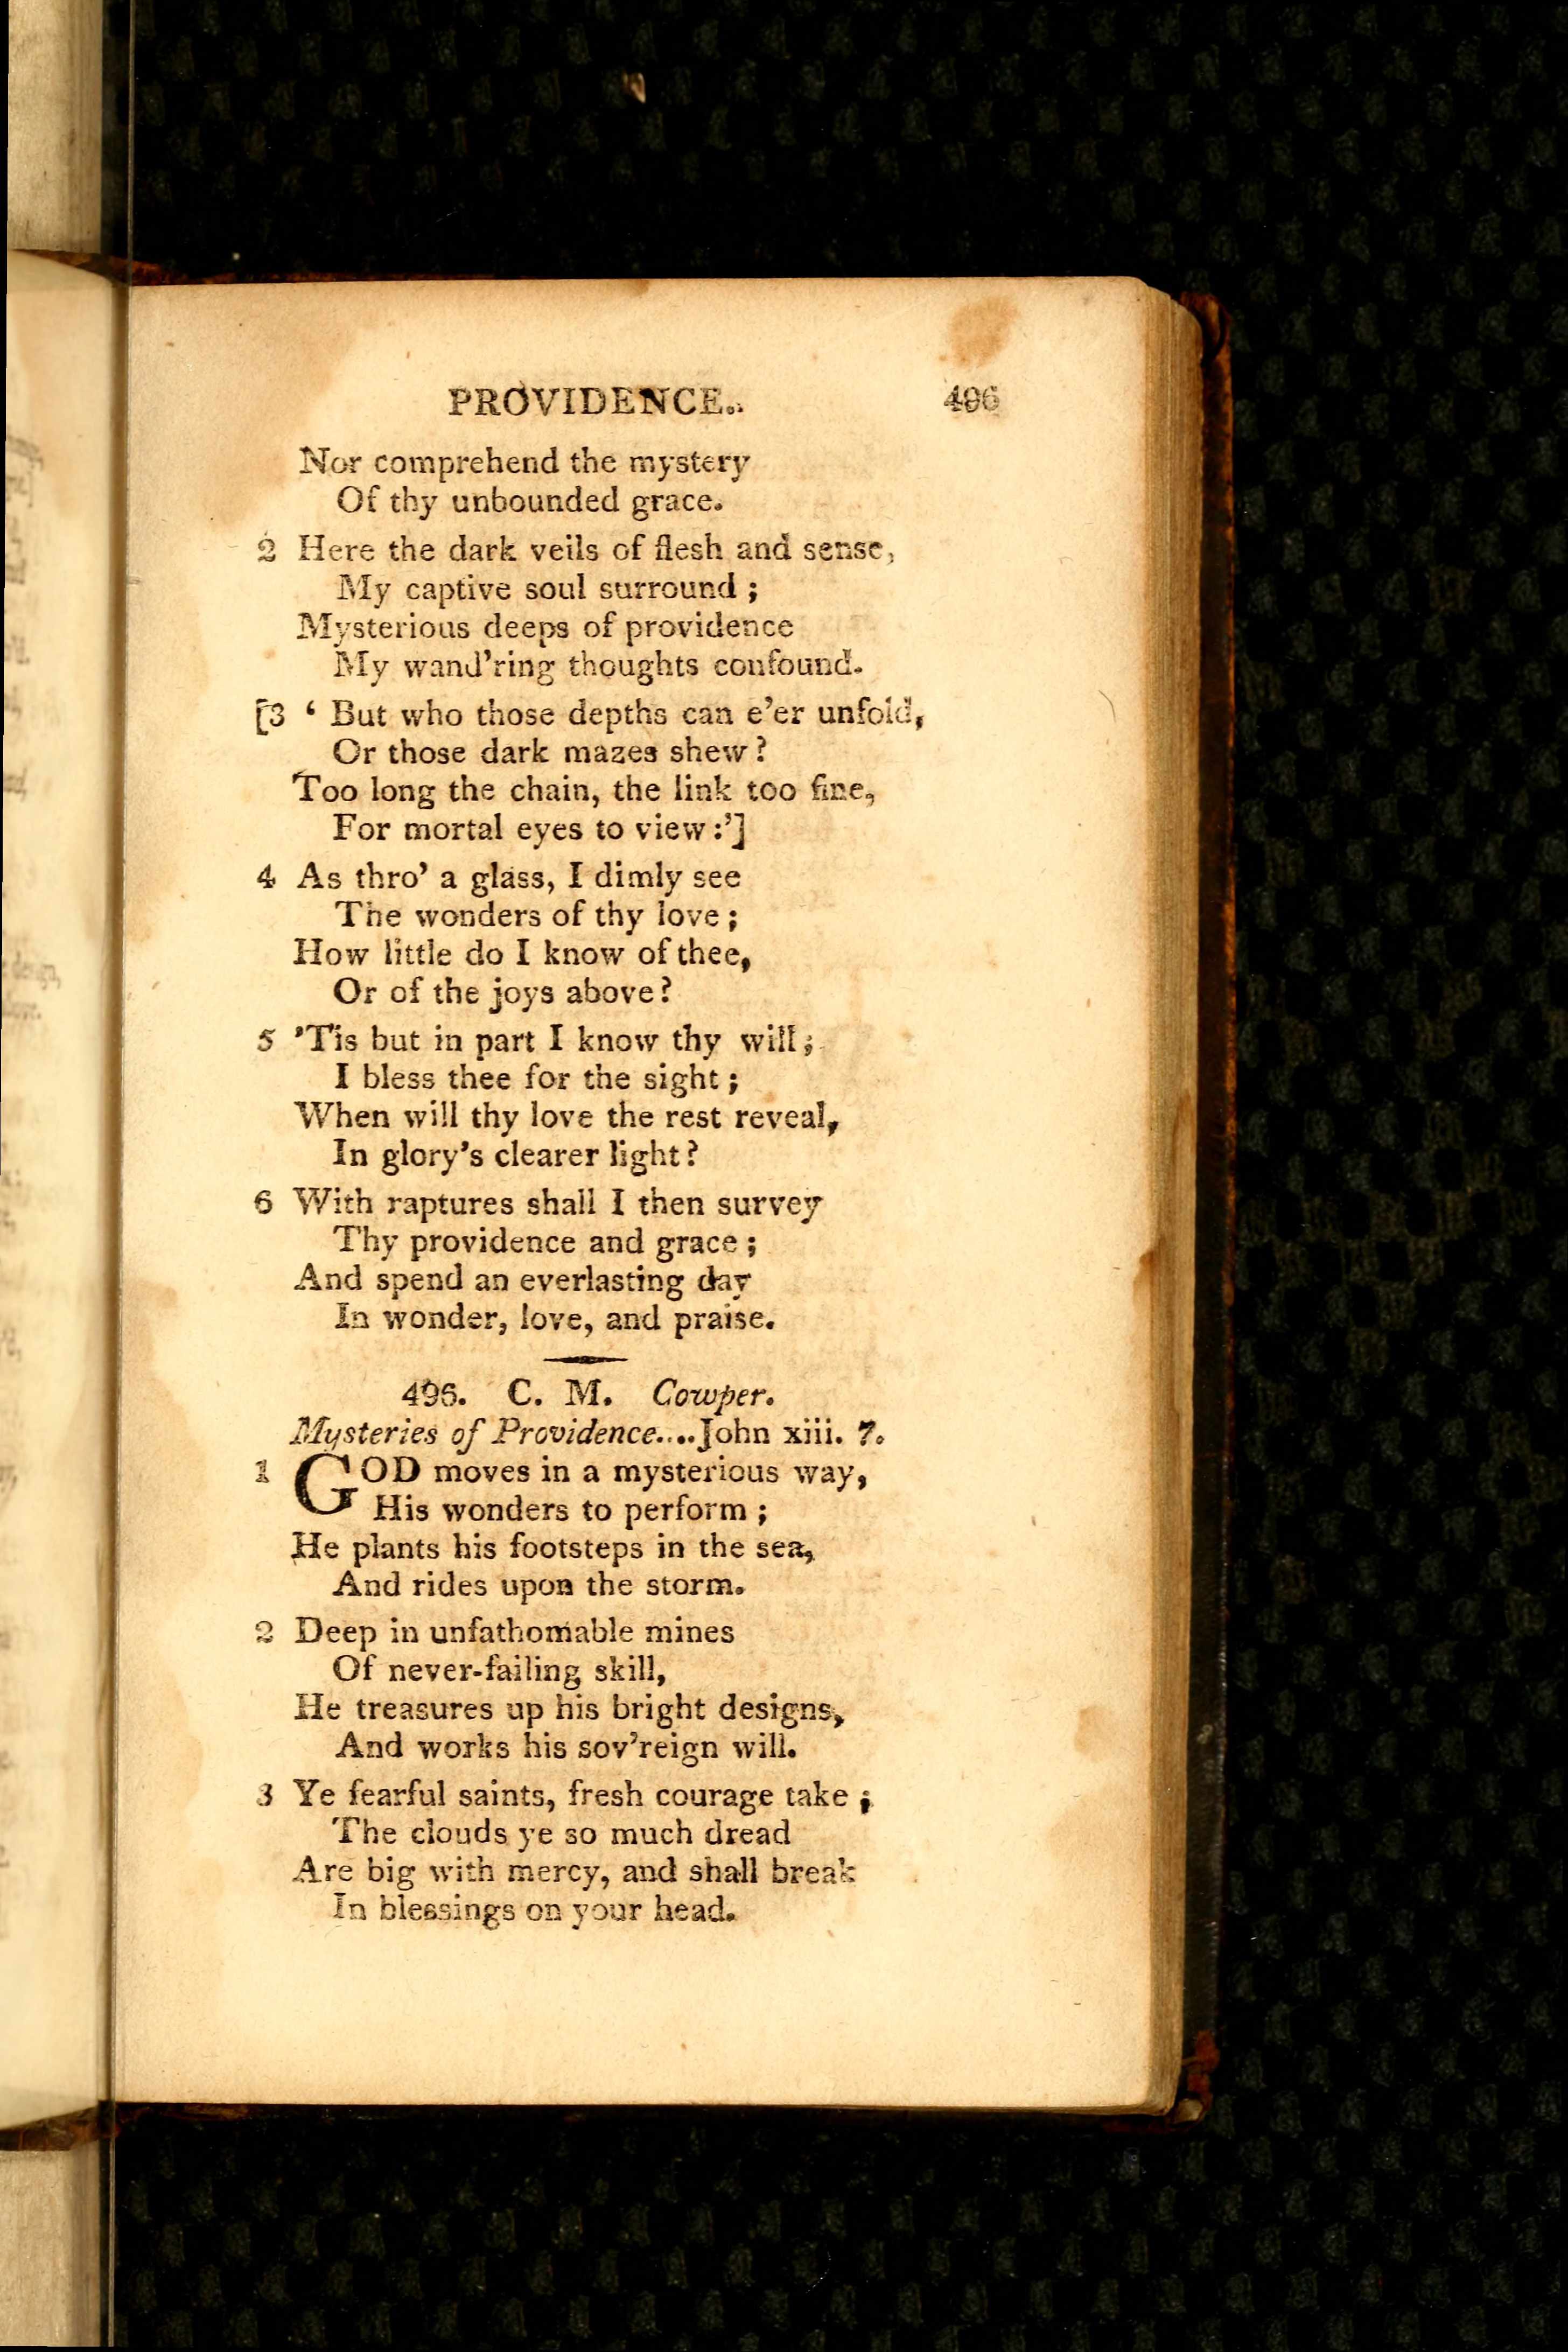 PROVIDENCE. 496
Nor comprehend the mystery
Of thy unbounded grace.
2 Here the dark veils of flesh and sense,
My captive soul surround ;
Mysterious deeps of providence
My wand'ring thoughts confound.
[3 ‘ But who those depths can e'er unfold,
Or those dark mazes shew ?
Too long the chain, the link too fine,
For mortal eyes to view :’]
4 As thro' a glass, I dimly see
The wonders of thy love ;
How little do I know of thee,
Or of the joys above ?
5 'Tis but in part I know thy will ;
I bless thee for the sight ;
When will thy love the rest reveal,
In glory's clearer light ?
6 With raptures shall I then survey
Thy providence and grace ;
And spend an everlasting day
In wonder, love, and praise.
496. C. M. Cowper.
Mysteries of Providence....John xiii. 7.
1 GOD moves in a mysterious way,
His wonders to perform ;
He plants his footsteps in the sea,
And rides upon the storm.
2 Deep in unfathomable mines
Of never-failing skill,
He treasures up his bright designs,
And works his sov'reign will.
3 Ye fearful saints, fresh courage take ;
The clouds ye so much dread
Are big with mercy, and shall break
In blessings on your head.